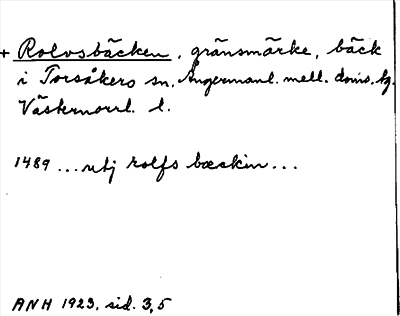 + Rolvsbäcken, gränsmärke, bäck
i Torsåkers sn, Ångermanl. mell. doms.hg.
Västernorrl. l.
1489 ... utj rolfs bæckin ...
ANH 1923, sid. 3,5